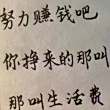 努力赚钱吧
你挣来的那叫
那叫生活费